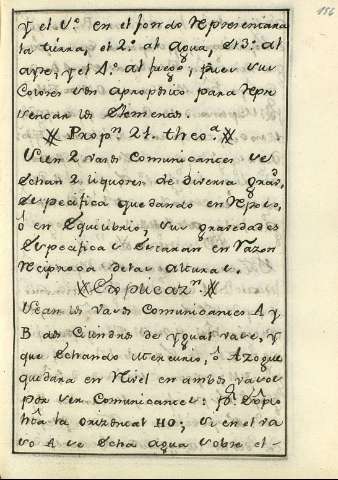 156
y el 1.º en el fondo representara
la tierra, el 2.º al agua, el 3.º al
ayre, y el 4.º al fuego, pues sus
Colores son aproposito para repre
sentar los Elementos.
Propⁿ. 2t. theoª.
Si en 2 vasos Comunicantes se
Echan 2 liquores de diversa gravd.
Especifica quedando en reposo,
ó en Equilibrio, sus gravedades
Especificas Estaran en razon
reciproca de las alturas.
Explicazⁿ.
Sean los vasos Comunicantes A y
B dos Cilindros de ygual vase, y
que Echando Mercurio, ó Azogue
quedara en Nivel en ambos vasos
por ser Comunicantes:
la orizontal HO; si en el va
so A se Echa agua sobre el -